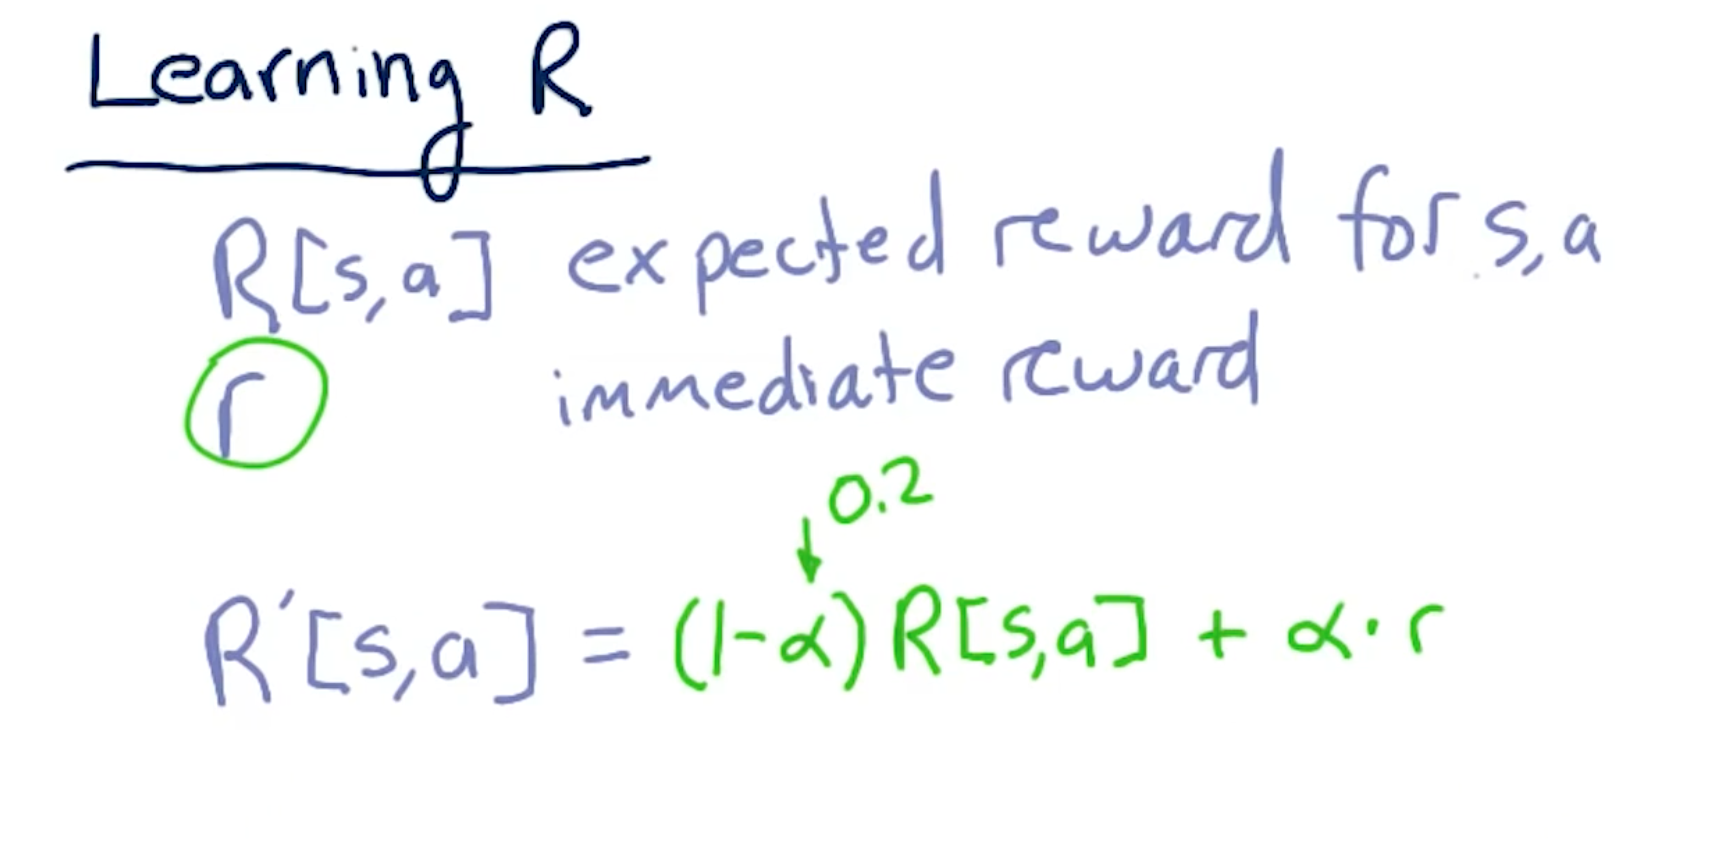 Learning R
R[s,a] expected reward for s,a
r immediate reward
0.2
R'[s,a] = (1-α) R[s,a] + α·r